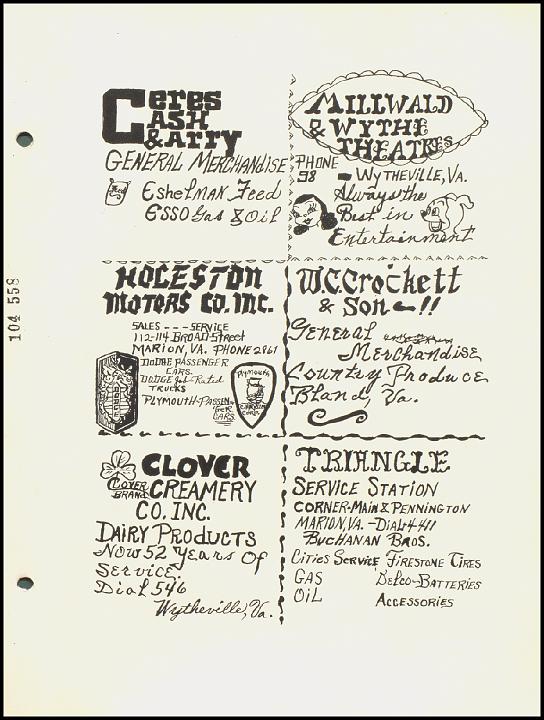 Ceres
Cash
& Carry
General Merchandise
Eshelman Feed
Esso Gas & Oil
Millwald
& Wythe
Theatres
Phone
98
- Wytheville, Va.
Always the
Best in
Entertainment
Holeston
Motors Co. Inc.
Sales --- Service
112-114 Broad Street
Marion, Va. Phone 2861
Dodge Passenger
Cars.
Dodge Job-Rated
Trucks
Plymouth-Passen-
ger
Cars.
Dodge
Plymouth
W.C. Crockett
& Son !!
General
Merchandise
Country Produce
Bland, Va.
Clover
Brand
Clover
Creamery
Co. Inc.
Dairy Products
Now 52 Years Of
Service
Dial 546
Wytheville, Va.
Triangle
Service Station
Corner-Main & Pennington
Marion, Va. - Dial 4411
Buchanan Bros.
Cities Service Firestone Tires
Gas Delco-Batteries
Oil Accessories
104 558